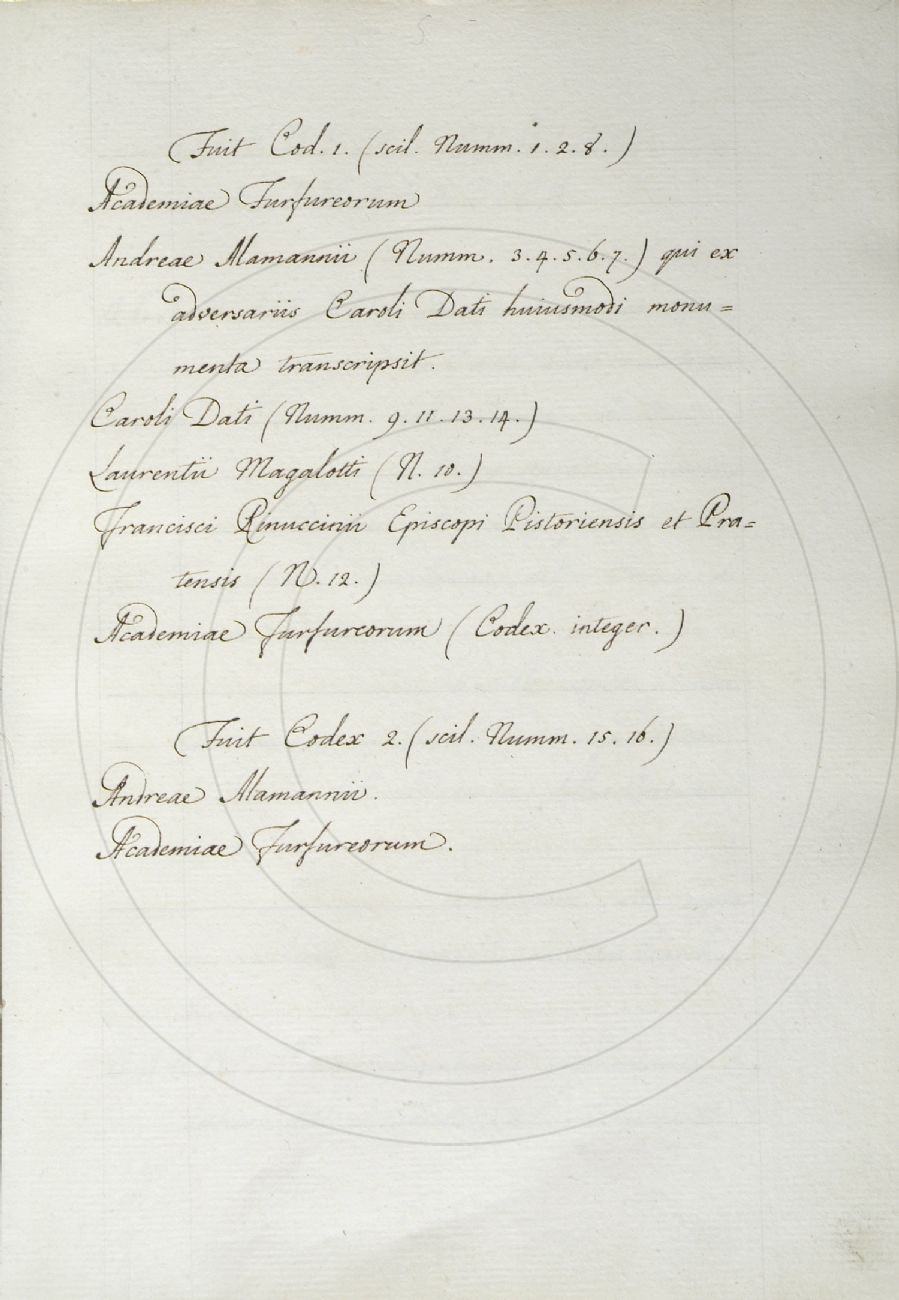 5
Fuit Cod. 1. (scil. Numm. 1. 2. 8.)
Academiae Furfureorum
Andreae Alamannii (Numm. 3. 4. 5. 6. 7.) qui ex
adversariis Caroli Dati huiusmodi monu=
menta transcripsit.
Caroli Dati (Numm. 9. 11. 13. 14.)
Laurentii Magalotti (N. 10.)
Francisci Rinuccinii Episcopi Pistoriensis et Pra=
tensis (N. 12.)
Academiae Furfureorum (Codex integer.)
Fuit Codex 2. (scil. Numm. 15. 16.)
Andreae Alamannii.
Academiae Furfureorum.